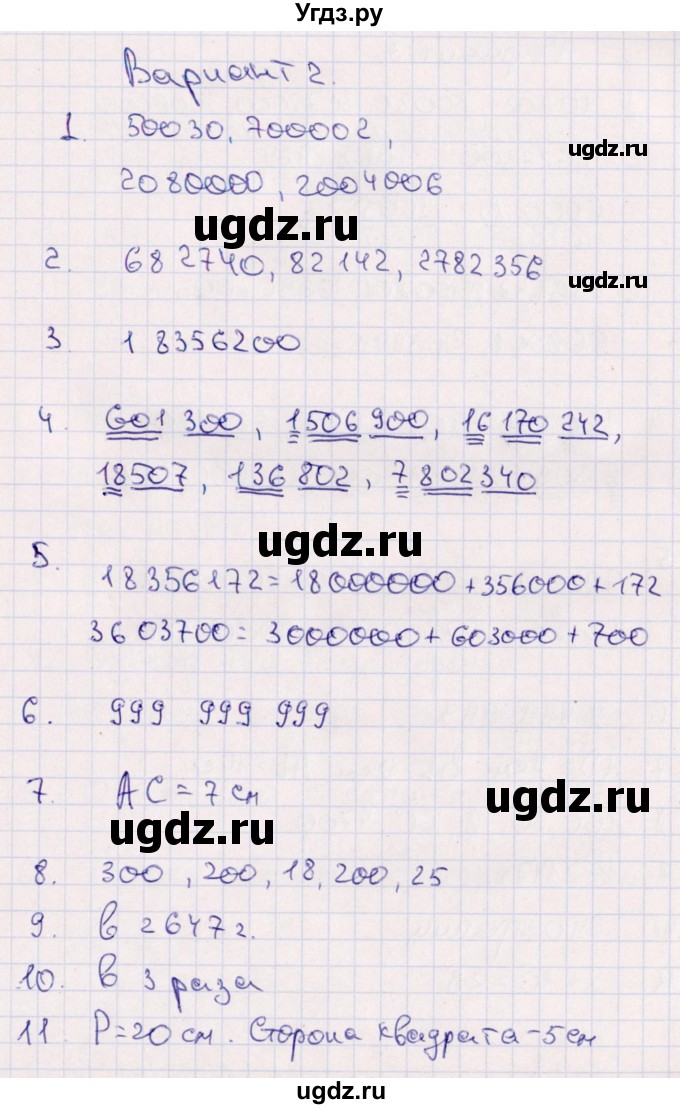 Угдз.ру
Вариант 2.
1. 50030, 700002,
ugdz.ru
2080000, 2004006
ugdz.ru
2. 682740, 82142, 2782356
ugdz.ru
3. 1 8356200
4. 601 300, 1506 900, 16 170 242,
18507, 136 802, 7 802 340
ugdz.ru
5. 18356172 = 18000000 + 356000 + 172
3603700 = 3000000 + 603000 + 700
6. 999 999 999
7. AC = 7 см
ugdz.ru
ugdz.ru
8. 300, 200, 18, 200, 25
9. в 2647 г.
10. в 3 раза
11. P=20 см. Сторона квадрата - 5 см
ugdz.ru